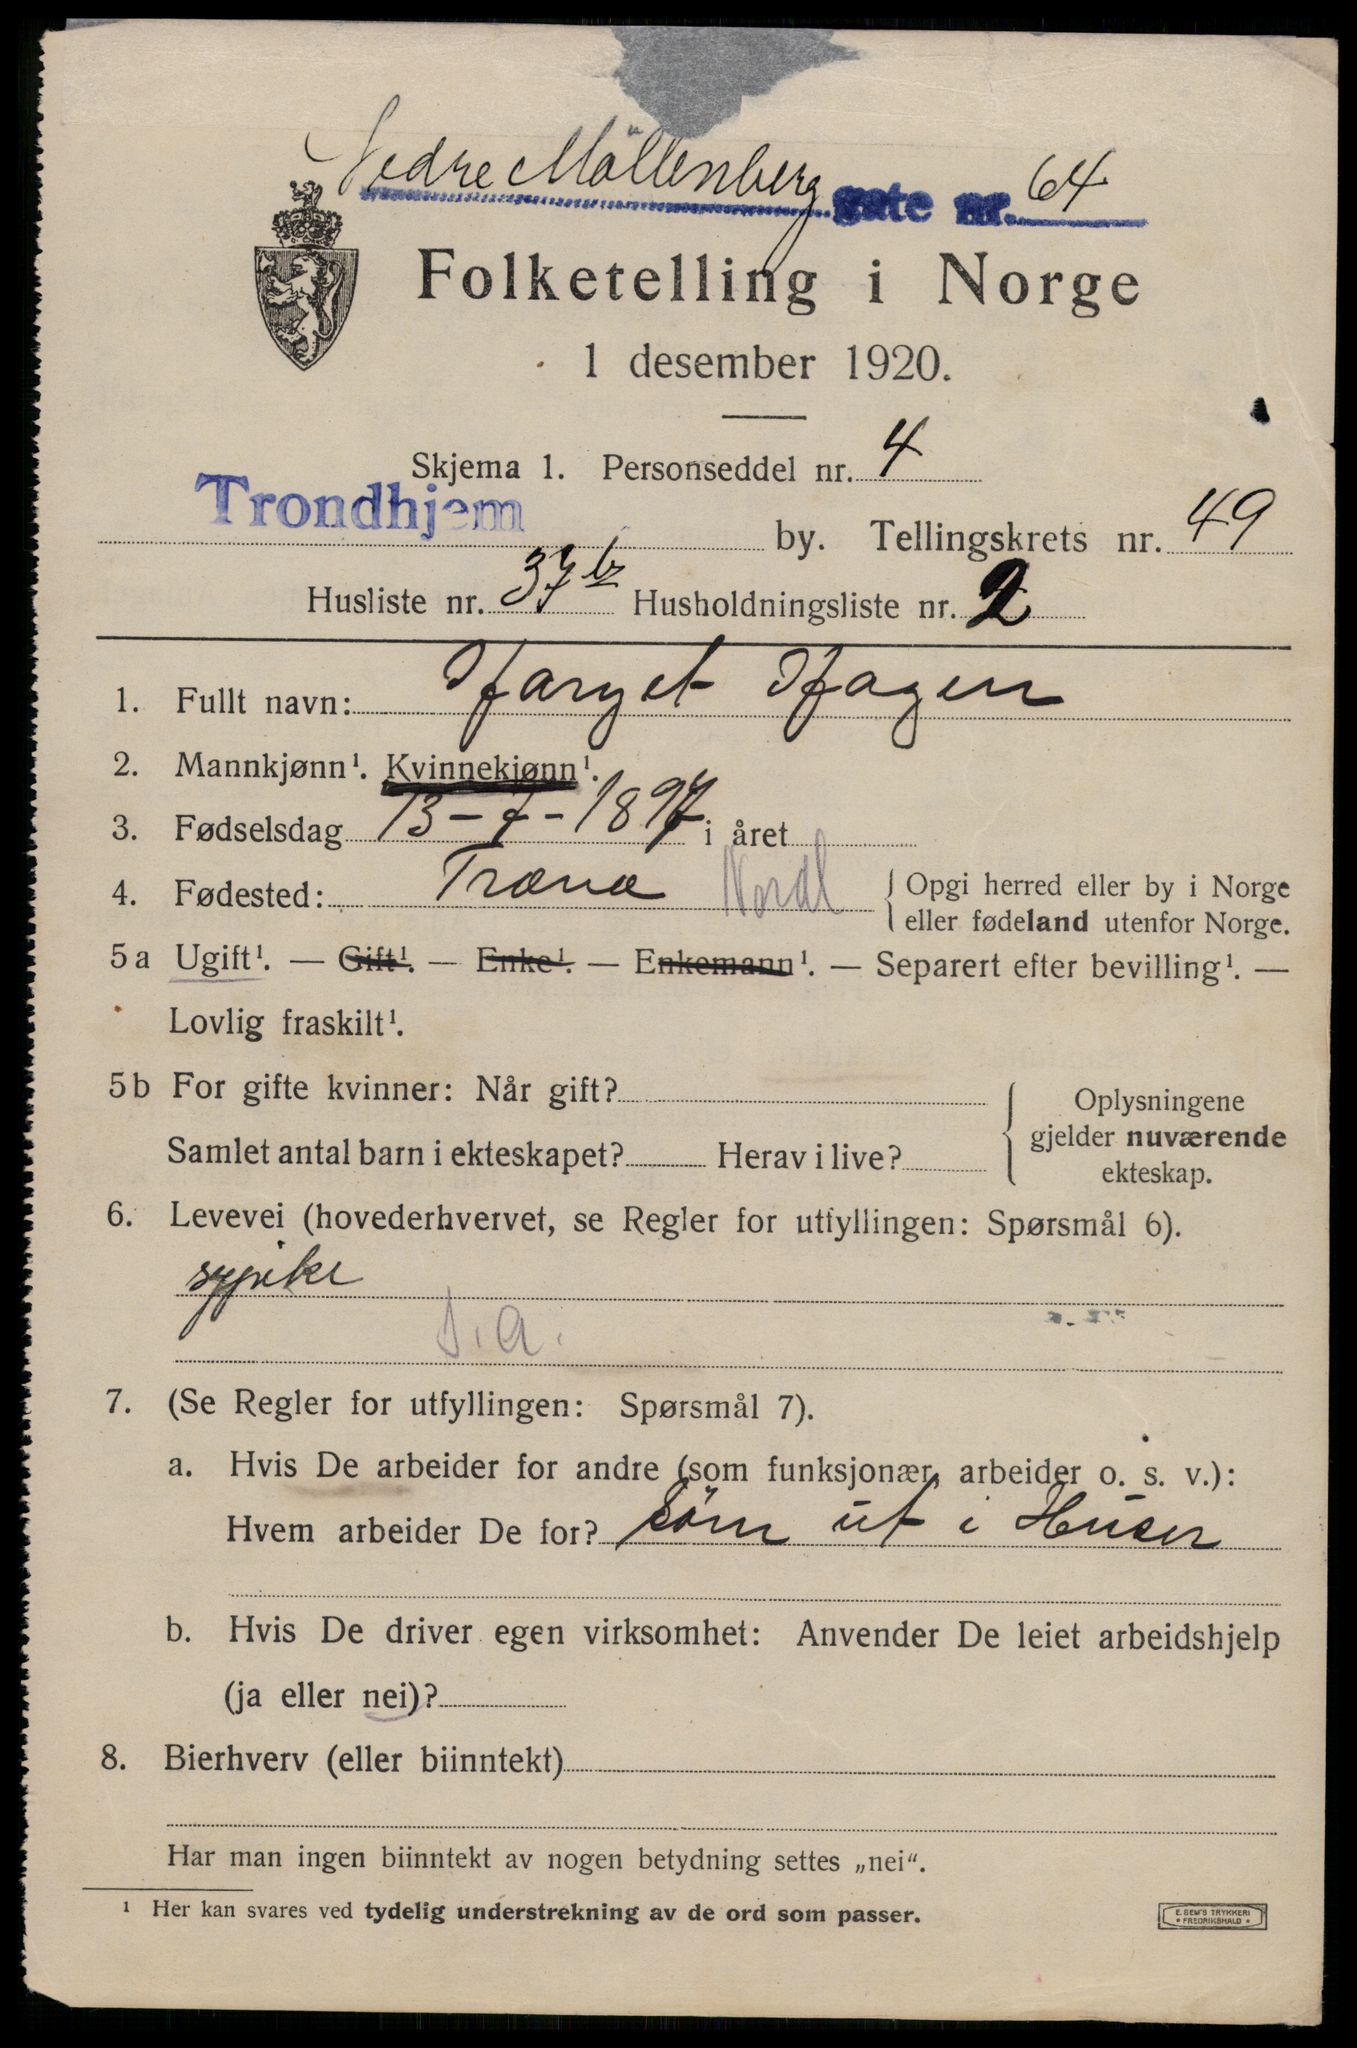 Nedre Möllenberg gate nr. 64
Folketelling i Norge
1 desember 1920.
Skjema 1. Personseddel nr. 4
Trondhjem by. Tellingskrets nr. 49
Husliste nr. 37b Husholdningsliste nr. 2
1. Fullt navn: Harget Hagen
2. Mannkjønn¹. Kvinnekjønn¹.
3. Fødselsdag 13-7-1897 i året
4. Fødested: Træna Nordl { Opgi herred eller by i Norge
eller fødeland utenfor Norge.
5a Ugift¹. — Gift¹. — Enke¹. — Enkemann¹. — Separert efter bevilling¹. —
Lovlig fraskilt¹.
5b For gifte kvinner: Når gift? { Oplysningene
gjelder nuværende
Samlet antal barn i ekteskapet? Herav i live? ekteskap.
6. Levevei (hovederhvervet, se Regler for utfyllingen: Spørsmål 6).
sypike
S. a.
7. (Se Regler for utfyllingen: Spørsmål 7).
a. Hvis De arbeider for andre (som funksjonær, arbeider o. s. v.):
Hvem arbeider De for? söm ut i Huser
b. Hvis De driver egen virksomhet: Anvender De leiet arbeidshjelp
(ja eller nei)?
8. Bierhverv (eller biinntekt)
Har man ingen biinntekt av nogen betydning settes „nei“.
¹ Her kan svares ved tydelig understrekning av de ord som passer.
E. SEM'S TRYKKERI
* FREDRIKSHALD *